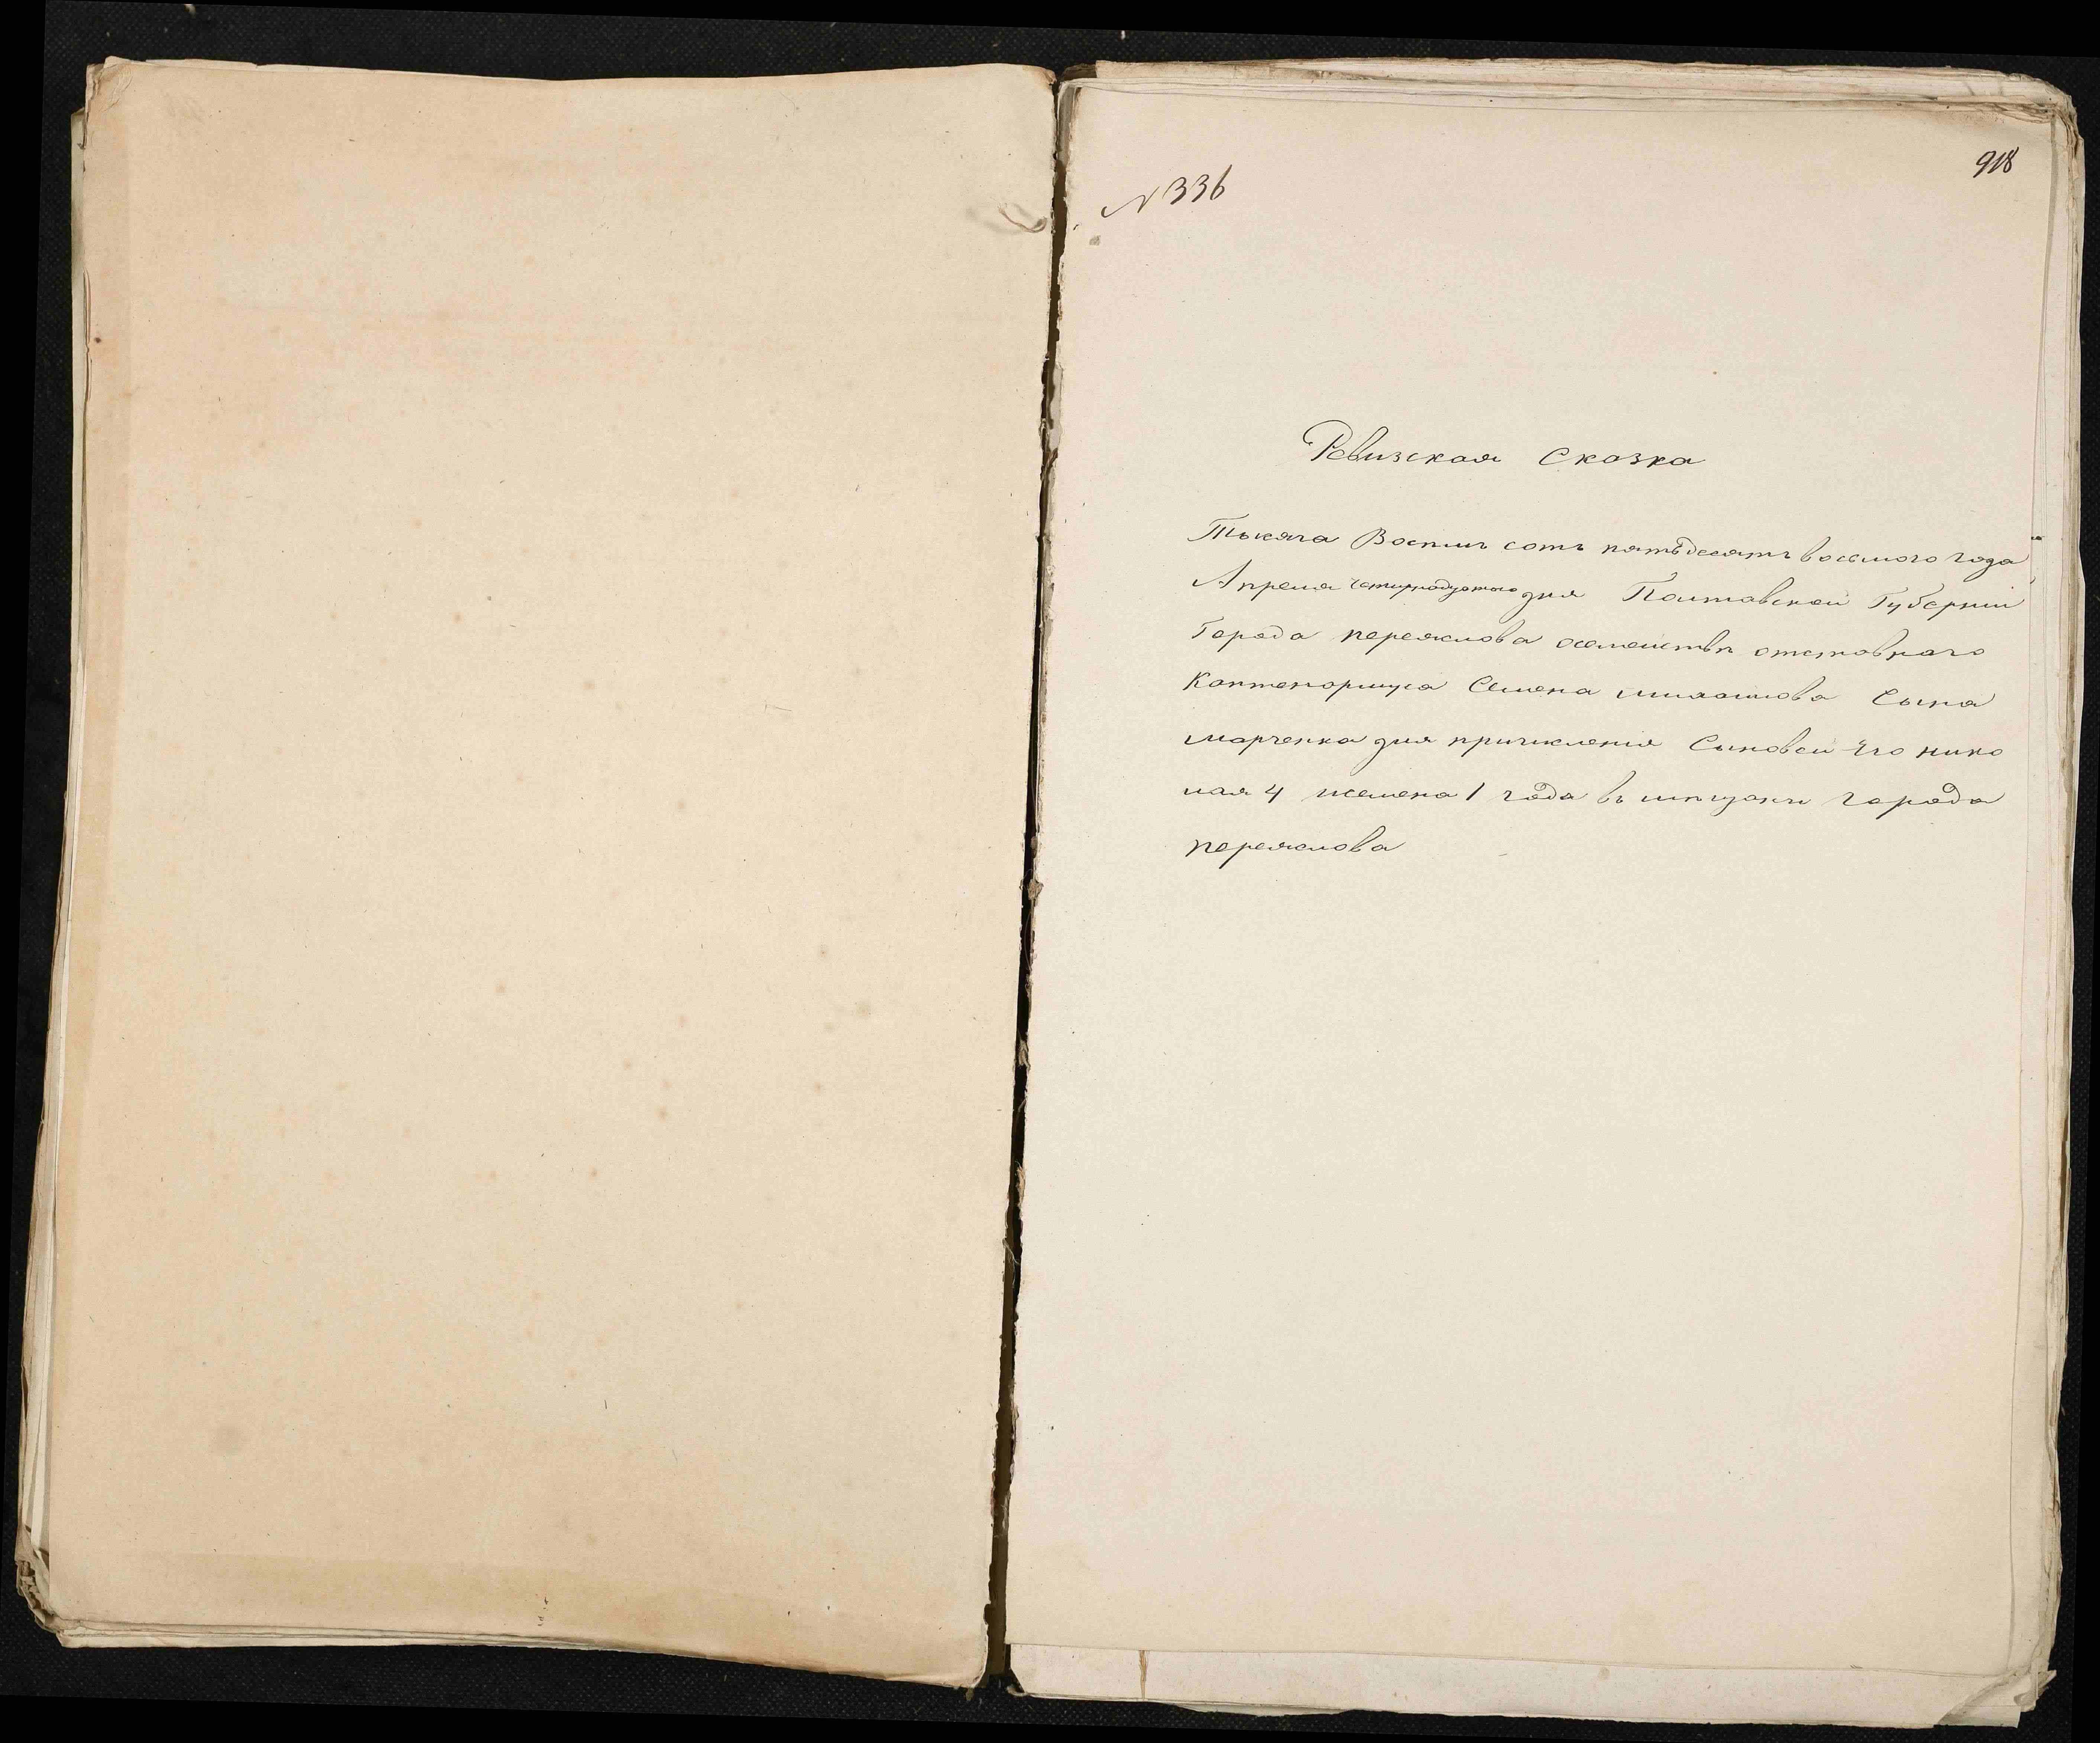 918
№ 336
Ревизская Сказка
Тысяча Восимь сотъ пятьдесятъ восьмого года
Апреля четирнадцатого дня Полтавской Губерніи
Города переяслова осемействѣ отставнаго
Коптенормуса Семена михаилова Сына
марченка для причисленія Сыновей Его нико
лая 4 исемена 1 года въ мѣщани города
переяслова